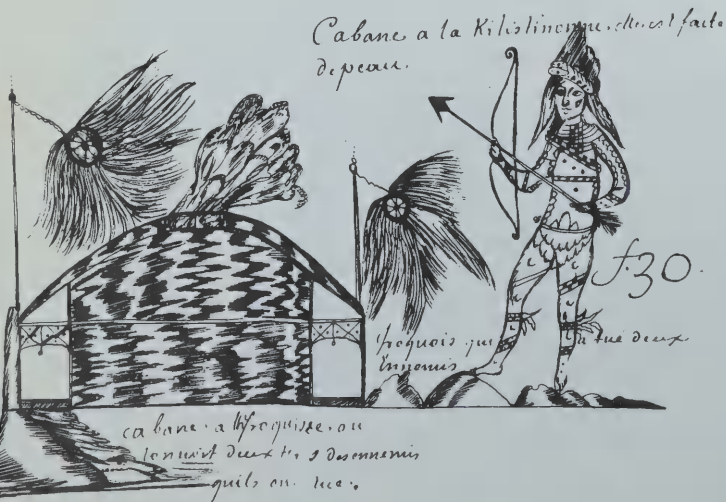 Cabane a la Kilistinonne. elle est faite
de peau.
f.30.
iroquois qui a tué deux
Ennemis
cabane a l'iroquoize. ou
deux des ennemis
quils on tuez.